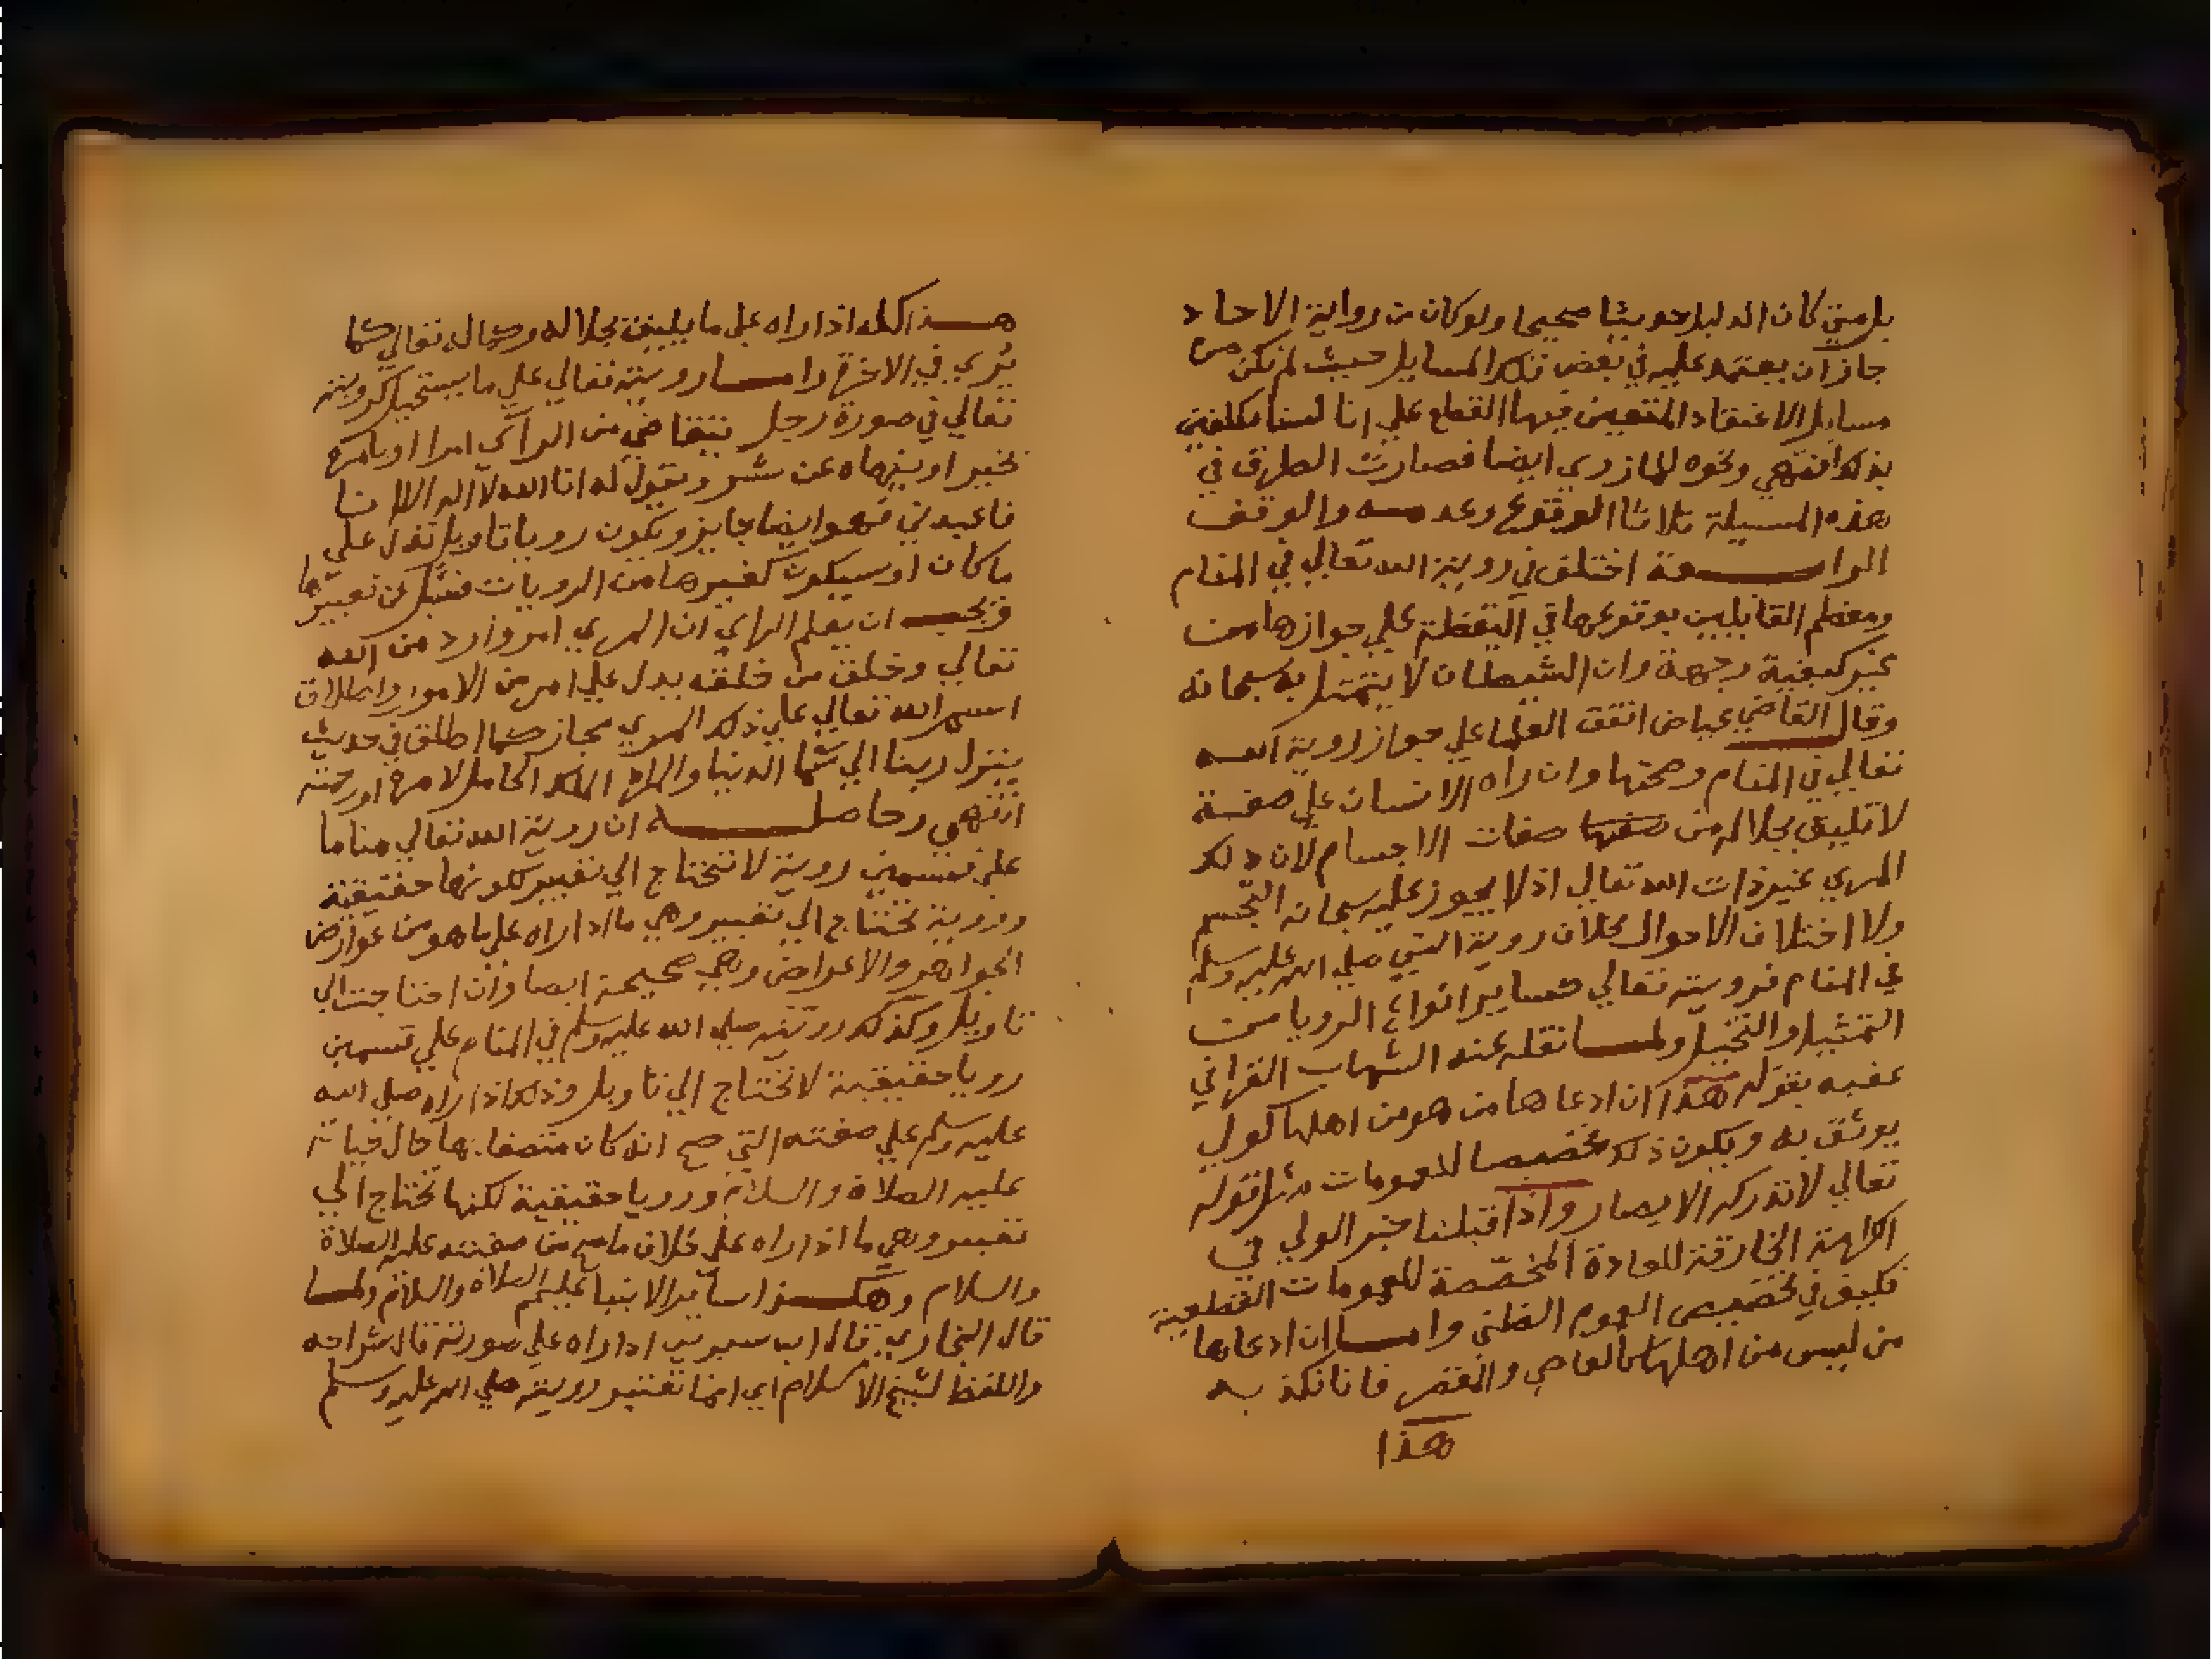 بل متي كان الدليل حديثا صحيحا ولو كان من رواية الاحاد
جاز ان يعتمد عليه في بعض تلك المسايل حيث لم تكن من
مسايل الاعتقاد المتعين فيها القطع علي انا لسنا مكلفين
بذلك انتهي ونحوه للمازري ايضا فصارت الطرق في
هذه المسيلة ثلاثا الوقوع وعدمه والوقف
الرابعة اختلف في روية الله تعالي في المنام
ومعظم القايلين بوقوعها في اليقظة علي جوازها من
غير كيفية وجهة وان الشيطان لا يتمثل به سبحانه
وقال القاضي عياض اتفق العلما علي جواز روية الله
تعالي في المنام وصحتها وان راه الانسان علي صفة
لا تليق بجلاله من صفات الاجسام لان ذلك
المري غير ذات الله تعالي اذ لا يجوز عليه سبحانه التجسم
ولا اختلاف الاحوال بخلاف روية النبي صلي الله عليه وسلم
في المنام فرويته تعالي كساير انواع الرويا من
التمثيل والتخييل ولما نقله عنه الشهاب القرافي
عقبه بقوله هذا ان ادعاها من هو من اهلها كولي
يوثق به ويكون ذلك تخصيصا للعمومات مثل قوله
تعالي لا تدركه الابصار واذا قبلنا خبر الولي في
الكرامة الخارقة للعادة المخصصة للعمومات القطعية
فكيف في تخصيص العموم الظني واما ان ادعاها
من ليس من اهلها كالعاصي والمقصر فانا نكذبه
هذا
هذا كله اذا راه علي ما يليق بجلاله وكماله تعالي كما
يري في الاخرة واما رويته تعالي علي ما يستحيل كرويته
تعالي في صورة رجل يتقاضي من الرآي امرا او يامره
بخير او ينهاه عن شر ويقول له انا الله لا اله الا انا
فاعبدني فهو ايضا جايز ويكون رويا تاويل تدل علي
ما كان او سيكون كغيرها من الرويات فيسيل عن تعبيرها
ويجب ان يعلم الراي ان المري امر وارد من الله
تعالي وخلق من خلقه يدل علي امر من الامور واطلاق
اسم الله تعالي علي ذلك المري مجاز كما اطلق في حديث
ينزل ربنا الي سما الدنيا والمراد الملك الحامل لامره او رحمته
انتهي وحاصله ان روية الله تعالي مناما
علي قسمين روية لا تحتاج الي تعبير لكونها حقيقية
وروية تحتاج الي تعبير وهي ما اذا راه علي ما هو من عوارض
الجواهر والاعراض وهي صحيحة ايضا وان احتاجت الي
تاويل وكذلك رويته صلي الله عليه وسلم في المنام علي قسمين
رويا حقيقية لا تحتاج الي تاويل وذلك اذا راه صلي الله
عليه وسلم علي صفته التي صح انه كان متصفا بها حال حياته
عليه الصلاة والسلام ورويا حقيقية لكنها تحتاج الي
تعبير وهي ما اذا راه علي خلاف ما صح من صفته عليه الصلاة
والسلام وهكذا ساير الانبيا عليهم الصلاة والسلام ولما
قال البخاري قال ابن سيرين اذا راه علي صورته قال شراحه
واللفظ لشيخ الاسلام اي انما تعتبر رويته صلي الله عليه وسلم